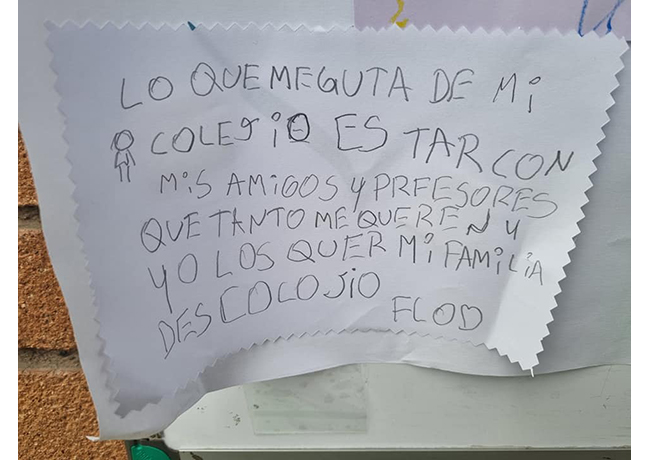 LO QUE ME GUTA DE Mi
COLEJiO ES TAR CON
MiS AMIGOS Y PRFESORES
QUE TANTO ME QUEREN Y
YO LOS QUER MI FAMILIA
DESCOLOJiO
FLOD